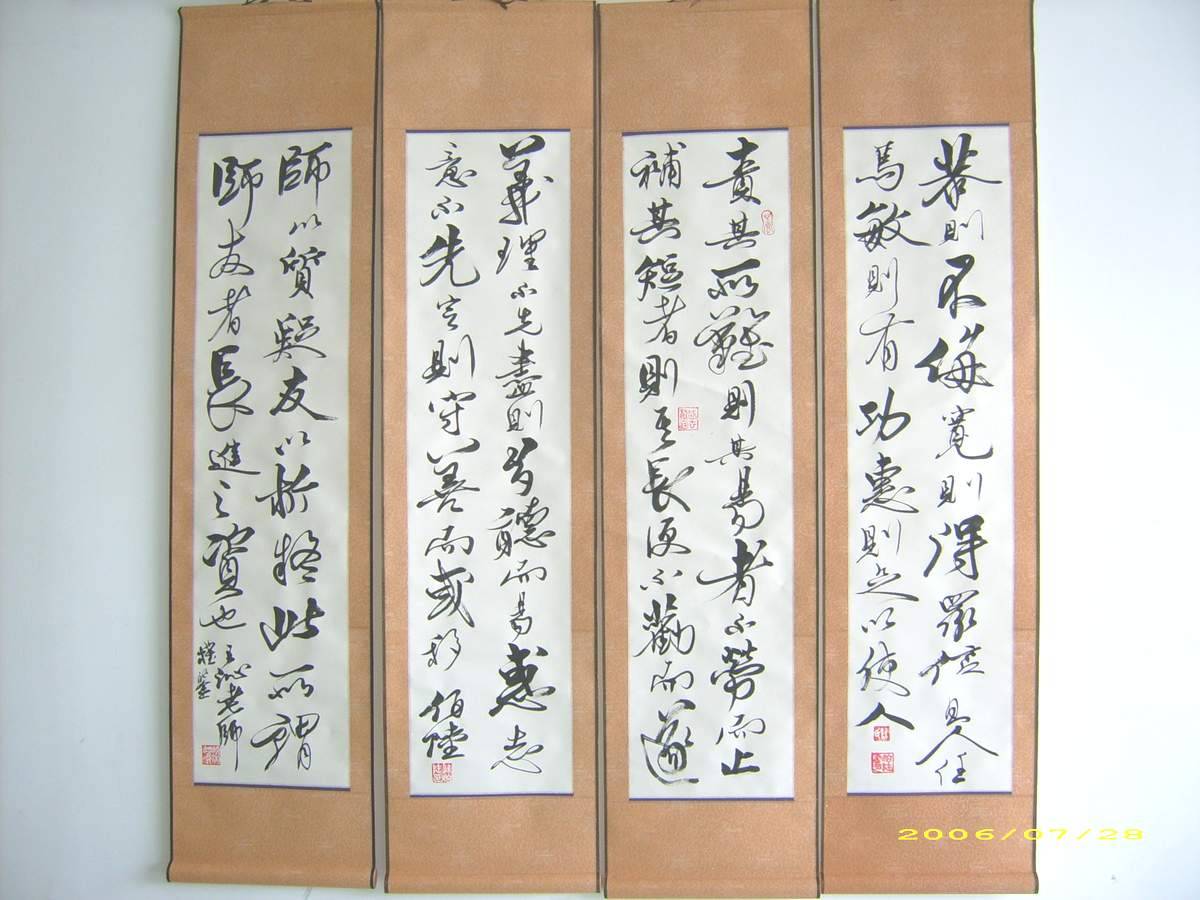 恭則不侮寬則得眾信則人任
焉敏則有功惠則足以使人
責其所難則其易者不勞而止
補其短者則其長便不勸而遂
義理不先盡則多聽而易惑志
意不先定則守善而或移
伯陸
師以質疑友以析疑此所謂
師友者長進之資也
王沁老師
2006/07/28